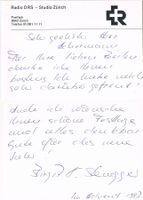 Radio DRS – Studio Zürich
Postfach
8042 Zürich
Telefon 01/361 11 11
Sehr geehrter Herr
Für Ihre lieben Zeilen
danke ich Ihnen
herzlich. Ich habe mich
sehr darüber gefreut!
Auch ich wünsche
Ihnen schöne Festtage
und alles denkbar
Gute für das neue
Jahr!
Im Advent 1987